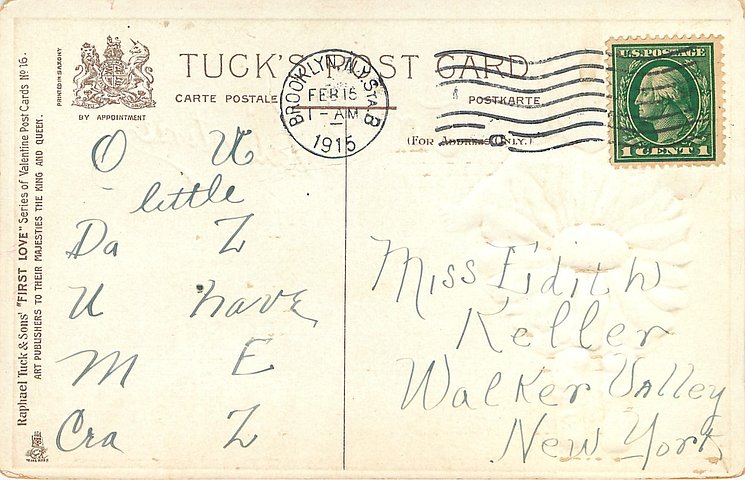 TUCK'S POST CARD
CARTE POSTALE
POSTKARTE
(FOR ADDRESS ONLY.)
BY APPOINTMENT
PRINTED IN SAXONY
Raphael Tuck & Sons' "FIRST LOVE" Series of Valentine Post Cards Nº 16.
ART PUBLISHERS TO THEIR MAJESTIES THE KING AND QUEEN.
BROOKLYN, N.Y. STA. B
FEB 15
1-AM
1915
U.S. POSTAGE
1 CENT 1
O U
little
Da Z
U have
M E
Cra Z
Miss Edith
Keller
Walker Valley
New York